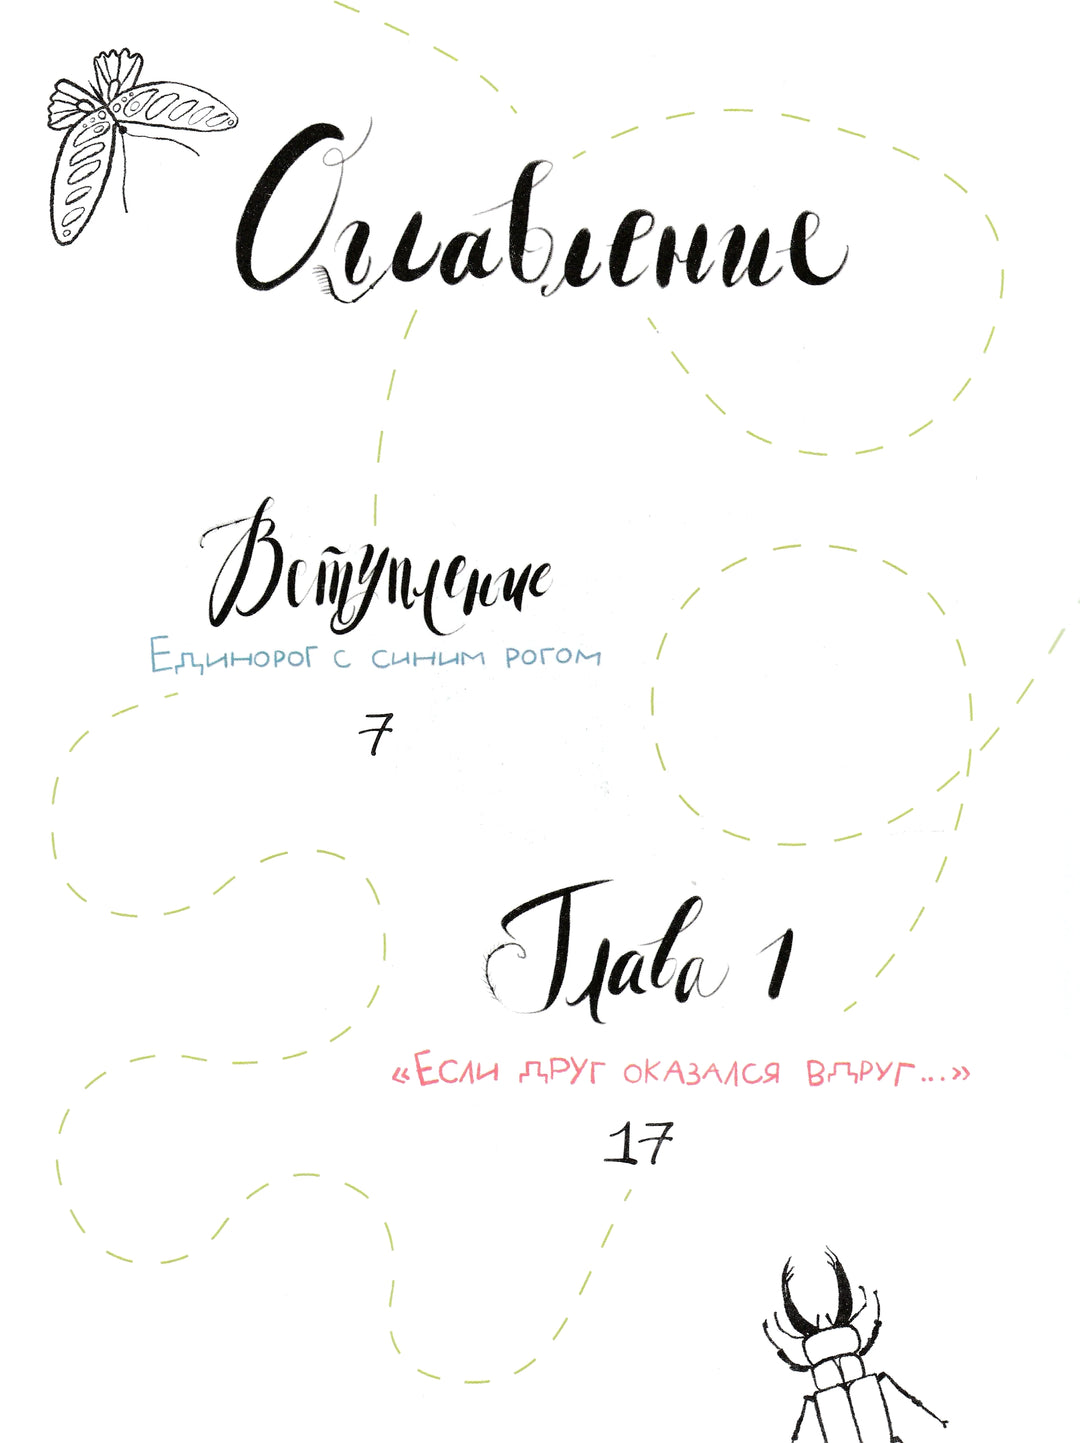 Оглавление
Вступление
Единорог с синим рогом
7
Глава 1
«Если друг оказался вдруг...»
17